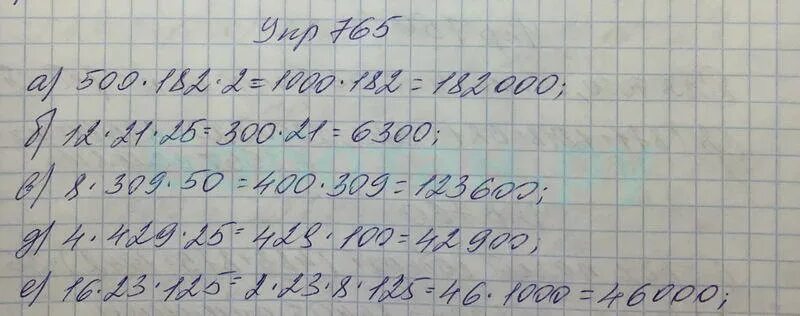 Упр 765
а) 500·182·2=1000·182=182000;
б) 12·21·25=300·21=6300;
в) 8·309·50=400·309=123600;
д) 4·429·25=429·100=42900;
е) 16·23·125=2·23·8·125=46·1000=46000;